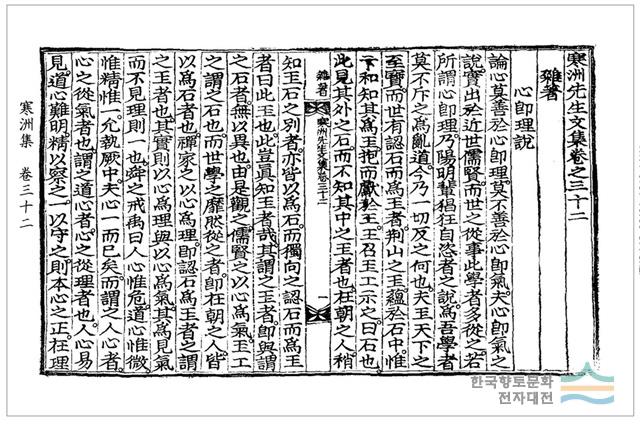 寒洲先生文集卷之三十二
雜著
心即理說
論心莫善於心即理莫不善於心即氣夫心即氣之
說實出於近世儒賢而世之從事此學者多從之若
所謂心即理乃陽明輩猖狂自恣者之說爲吾學者
莫不斥之爲亂道今乃一切反之何也夫玉天下之
至寶而世有認石而爲玉者荆山之玉蘊於石中惟
卞和知其爲玉抱而獻於王王召玉工示之曰石也
此見其外之石而不知其中之玉者也在朝之人稍
雜著 寒洲先生文集卷三十二 一
知玉石之別者亦皆以爲石而獨向之認石而爲玉
者曰此玉也此豈眞知玉者哉其謂之玉者即與謂
之石者無以異也由是觀之儒賢之以心爲氣玉工
之謂之石也而世學之靡然從之者即在朝之人皆
以爲石者也禪家之以心爲理即認石爲玉者之謂
之玉者也其實則以心爲理與以心爲氣其爲見氣
而不見理則一也舜之戒禹曰人心惟危道心惟微
惟精惟一允執厥中夫心一而已矣而謂之人心者
心之從氣者也謂之道心者心之從理者也人心易
見道心難明精以察之一以守之則本心之正在理
寒洲集 卷三十二
한국향토문화
전자대전